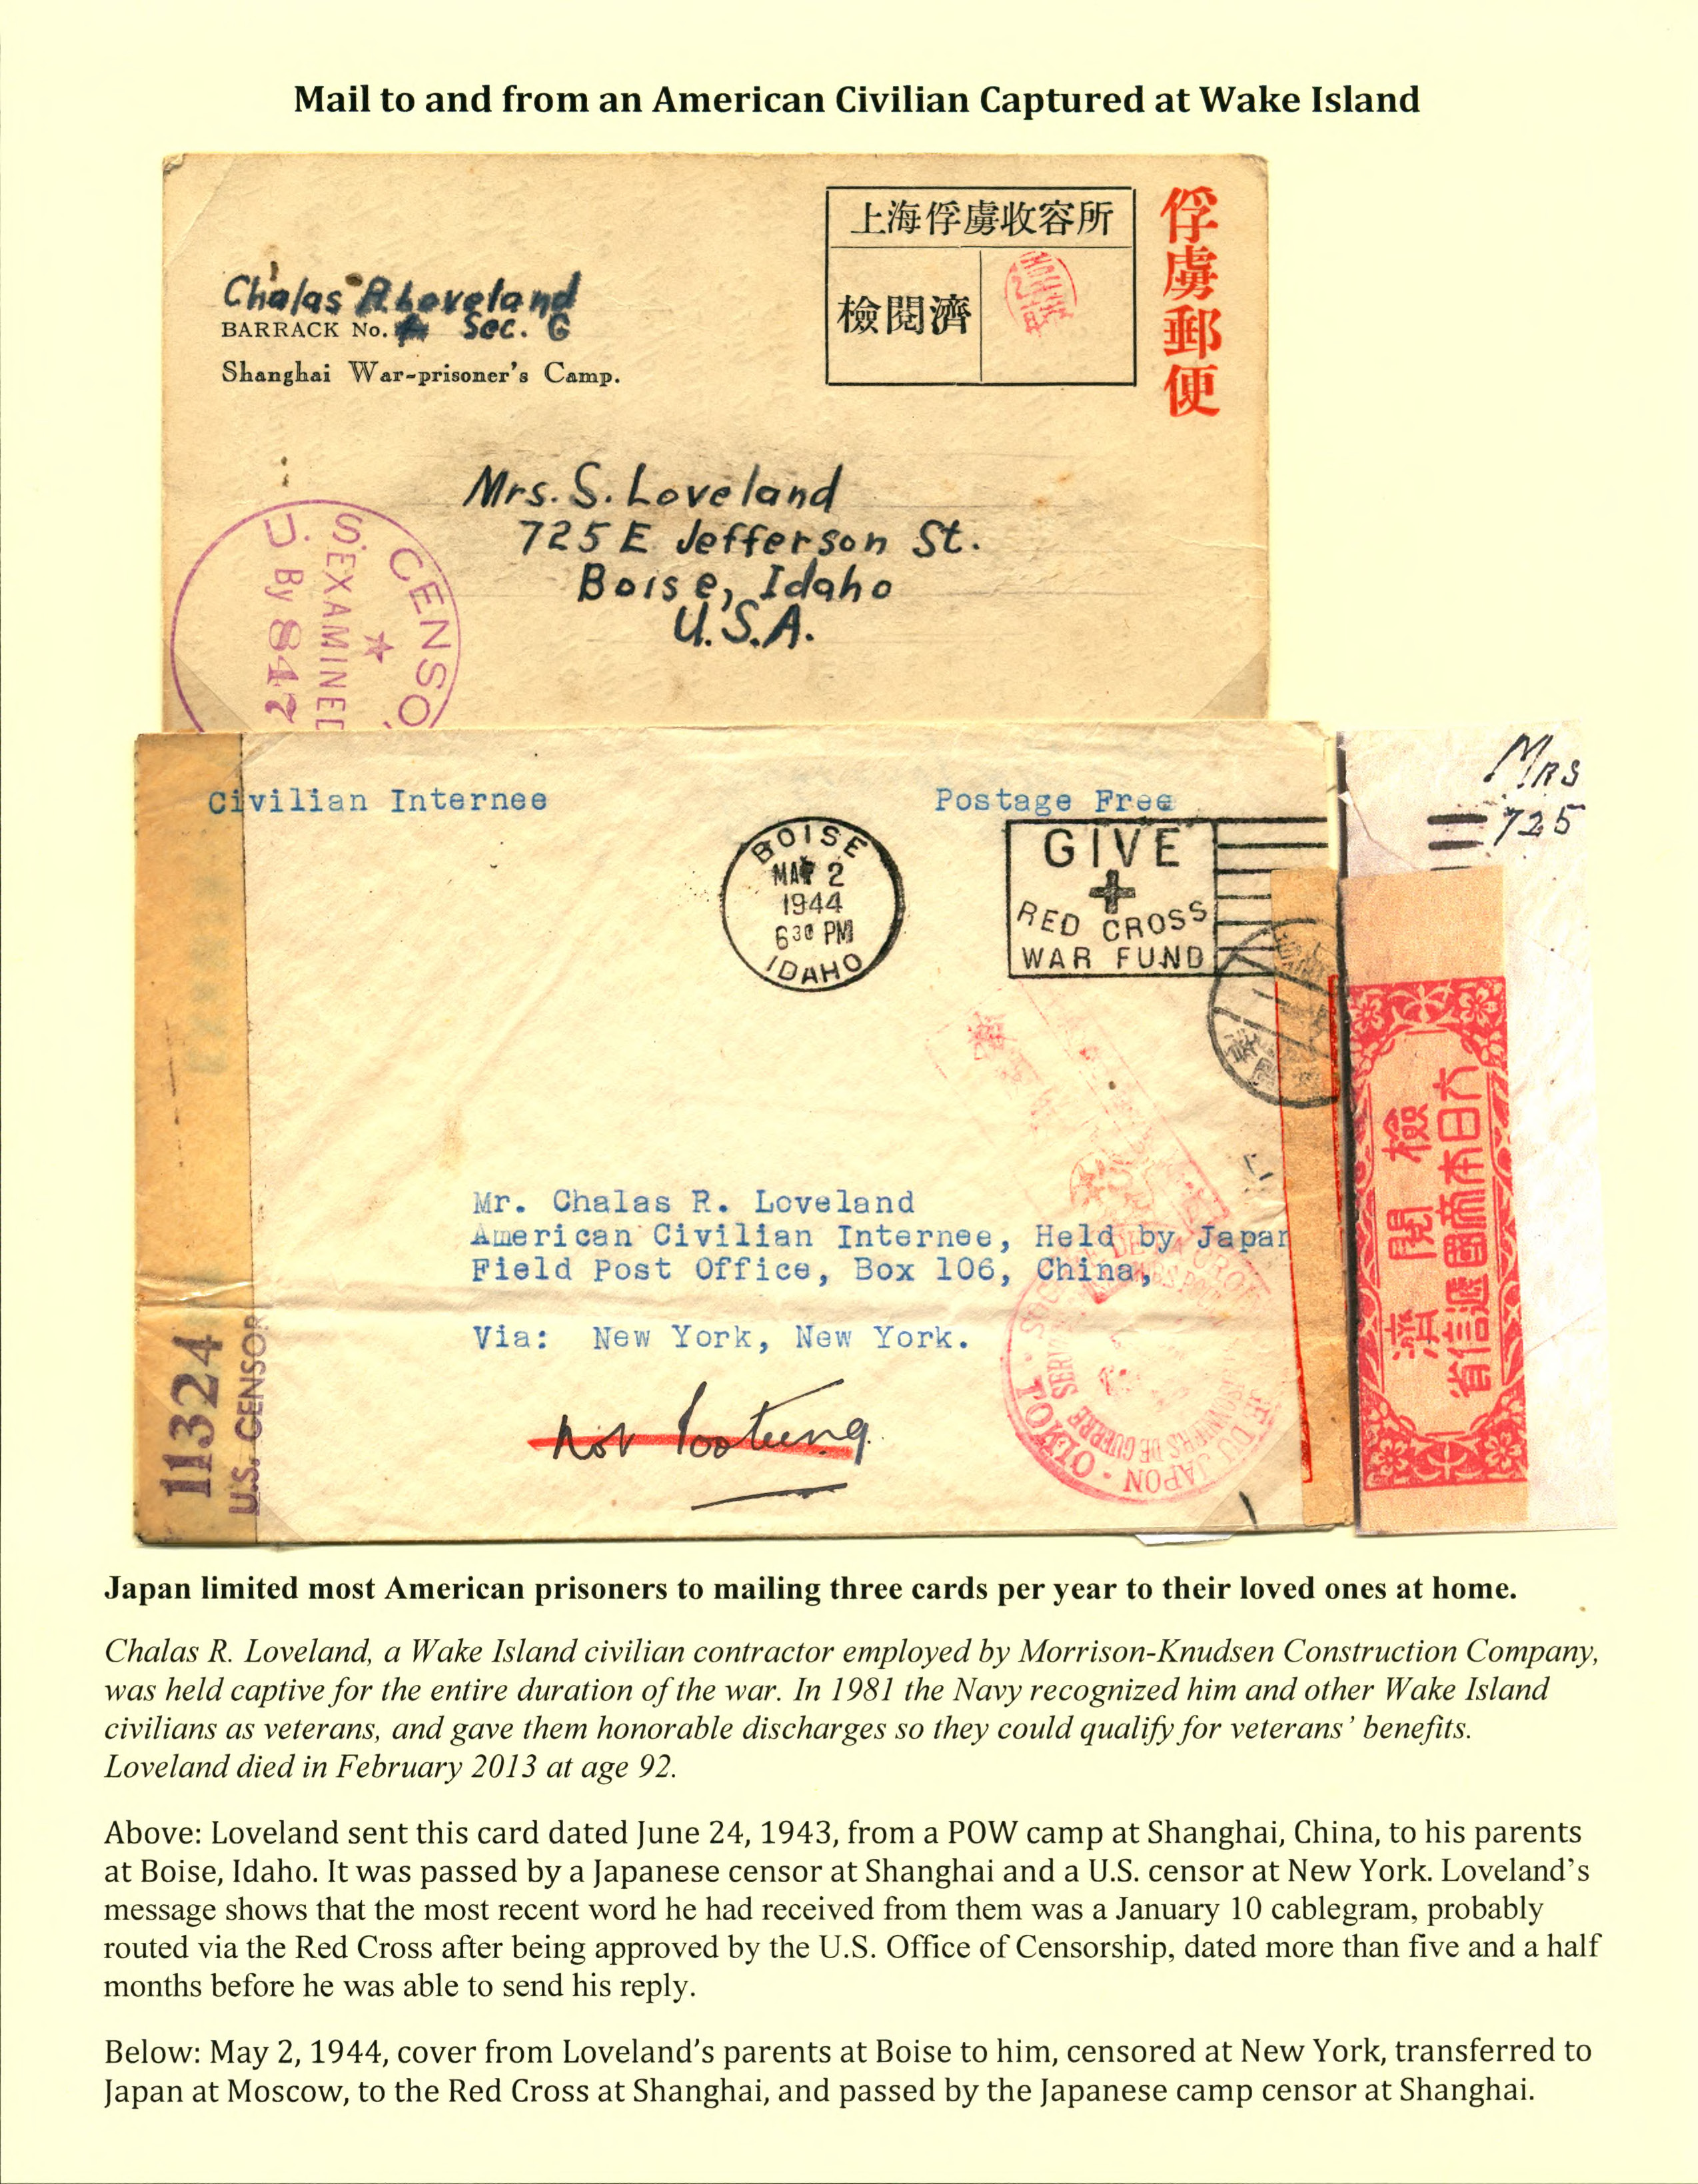 Mail to and from an American Civilian Captured at Wake Island
上海俘虜收容所
檢閲濟
俘虜郵便
Chalas R. Loveland
BARRACK No. Sec. G
Shanghai War-prisoner's Camp.
Mrs. S. Loveland
725 E Jefferson St.
Boise, Idaho
U.S.A.
U. S. CENSO
EXAMINED
By 847
Civilian Internee
Postage Free
BOISE
2
1944
6 30 PM
IDAHO
GIVE
RED CROSS
WAR FUND
MRS
725
大日本帝國遞信省
檢閲濟
Mr. Chalas R. Loveland
American Civilian Internee, Held by Japan
Field Post Office, Box 106, China,
Via: New York, New York.
Not
11324
U.S. CENSOR
TOKIO
JAPON
DE GUERRE
Japan limited most American prisoners to mailing three cards per year to their loved ones at home.
Chalas R. Loveland, a Wake Island civilian contractor employed by Morrison-Knudsen Construction Company,
was held captive for the entire duration of the war. In 1981 the Navy recognized him and other Wake Island
civilians as veterans, and gave them honorable discharges so they could qualify for veterans' benefits.
Loveland died in February 2013 at age 92.
Above: Loveland sent this card dated June 24, 1943, from a POW camp at Shanghai, China, to his parents
at Boise, Idaho. It was passed by a Japanese censor at Shanghai and a U.S. censor at New York. Loveland's
message shows that the most recent word he had received from them was a January 10 cablegram, probably
routed via the Red Cross after being approved by the U.S. Office of Censorship, dated more than five and a half
months before he was able to send his reply.
Below: May 2, 1944, cover from Loveland's parents at Boise to him, censored at New York, transferred to
Japan at Moscow, to the Red Cross at Shanghai, and passed by the Japanese camp censor at Shanghai.